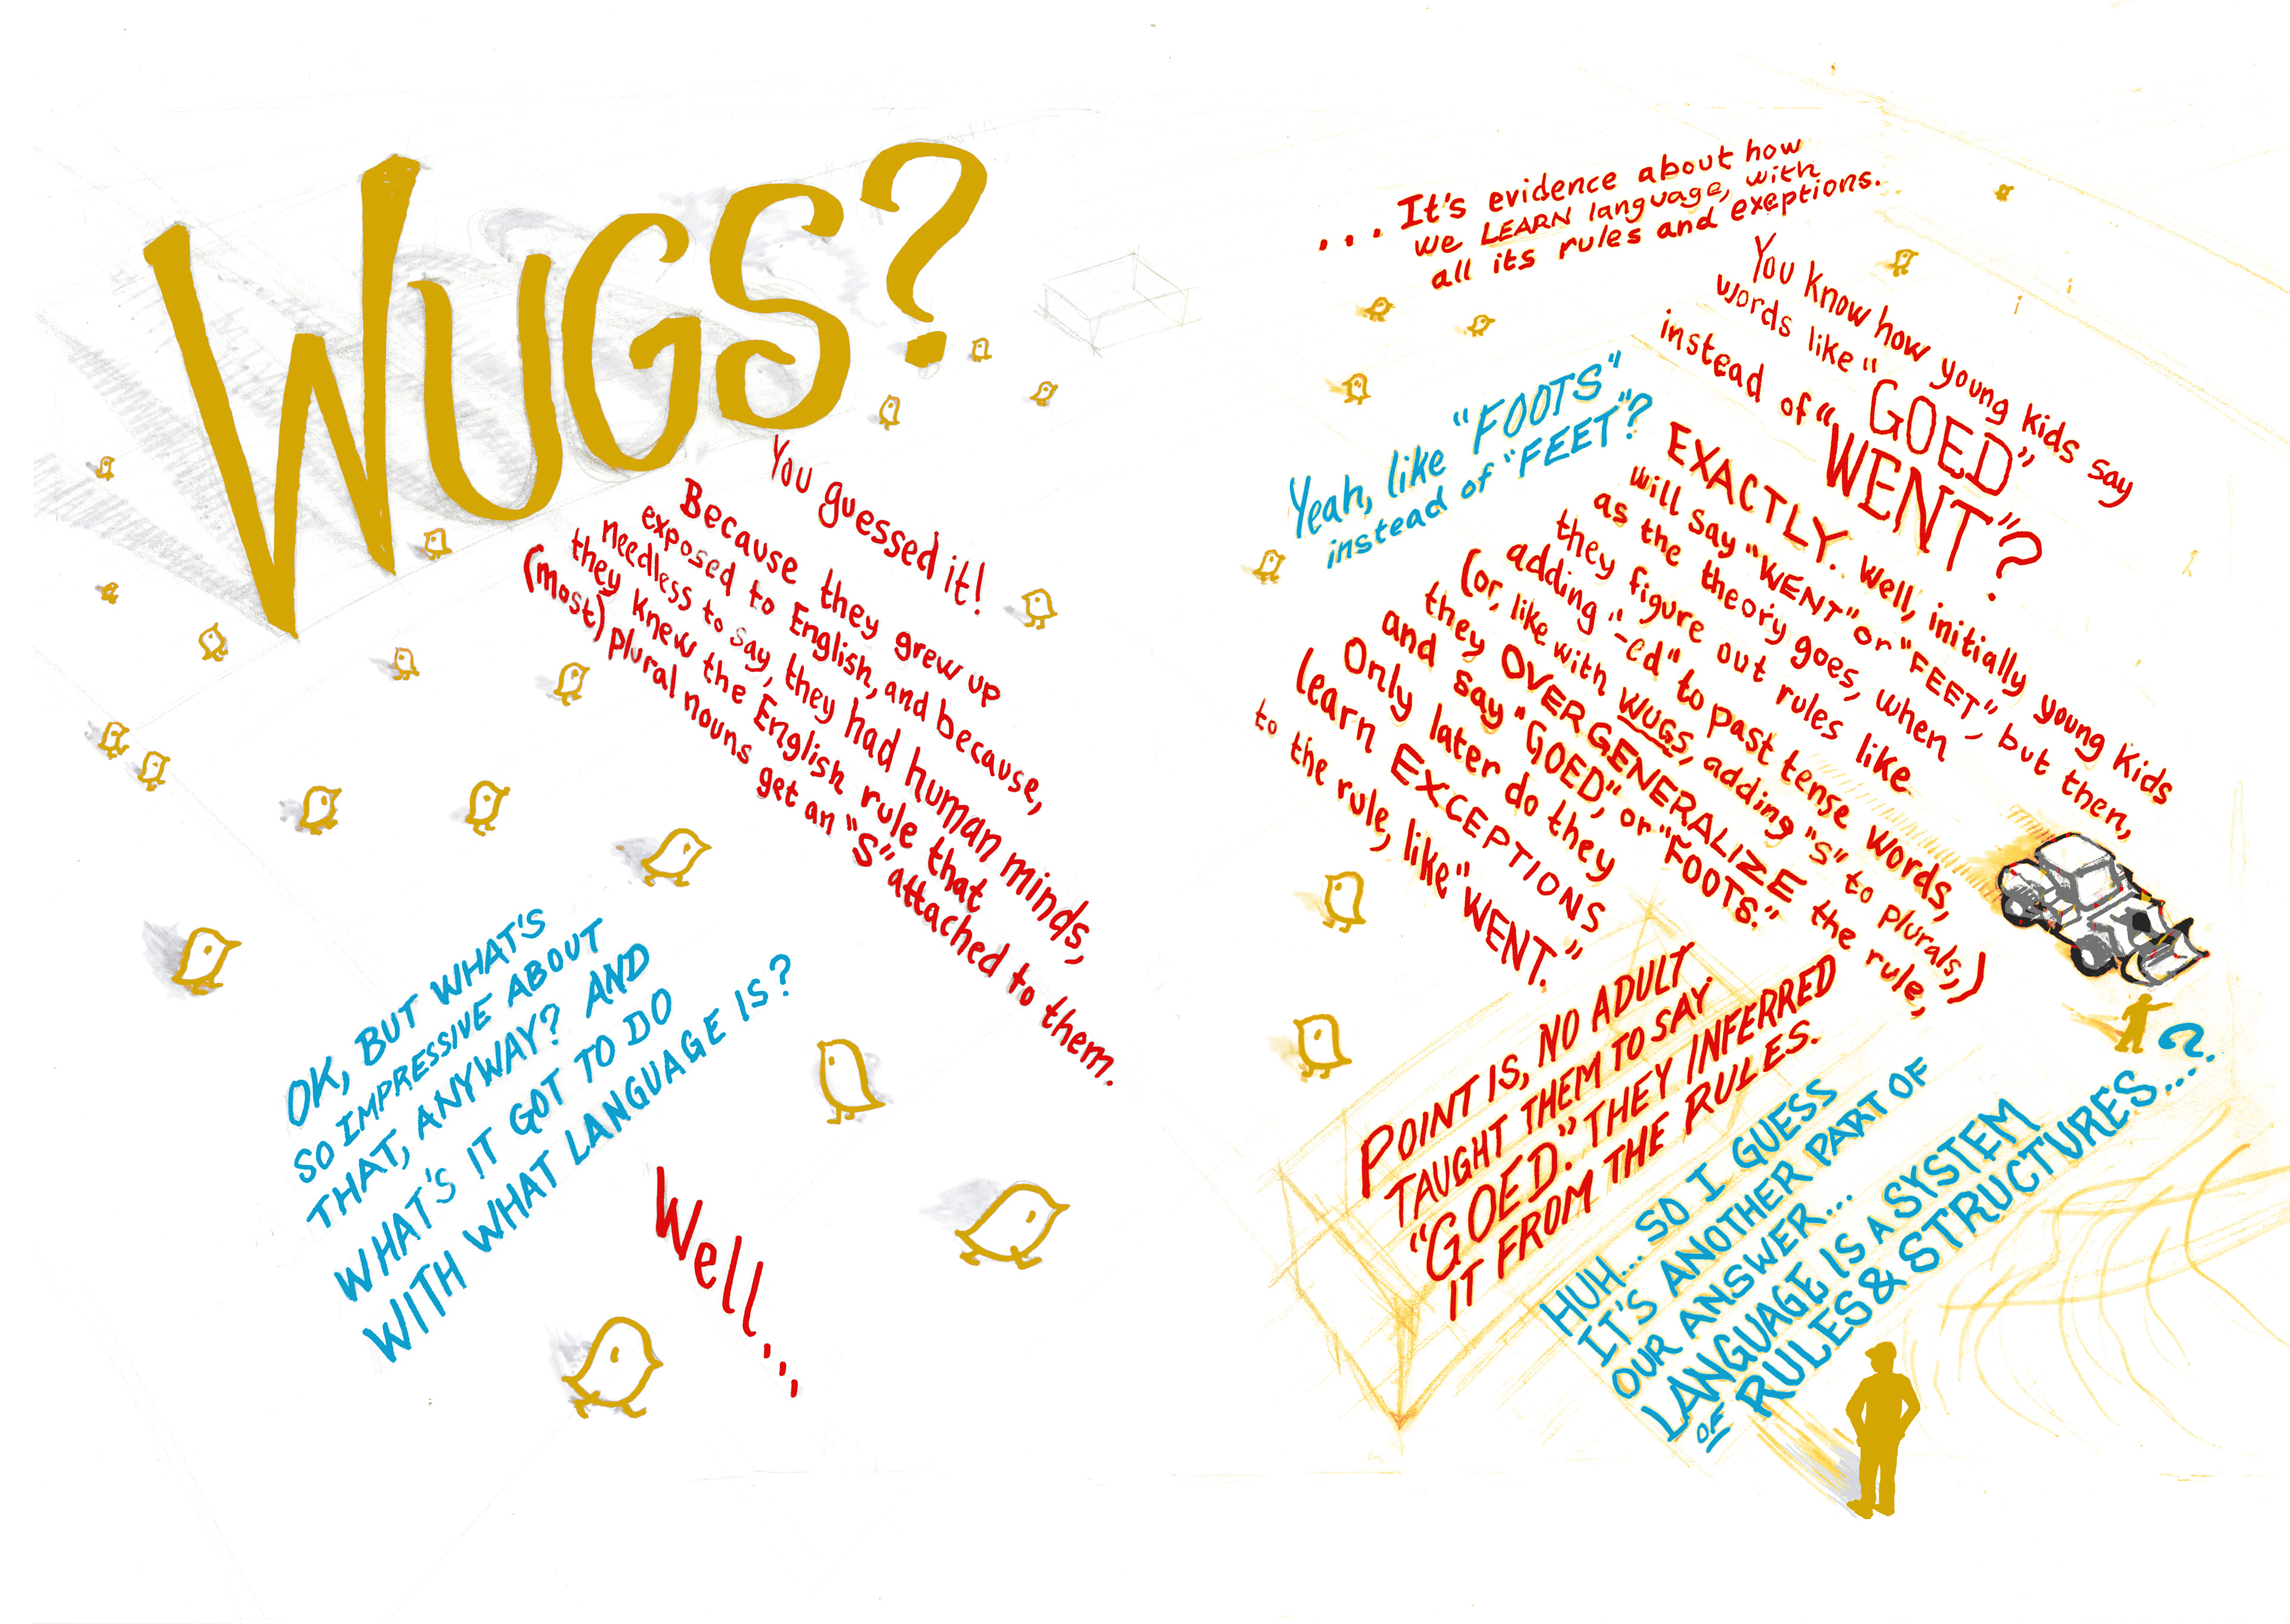 WUGS?
You guessed it!
Because they grew up
exposed to English, and because,
needless to say, they had human minds,
they knew the English rule that
(most) plural nouns get an "S" attached to them.
OK, BUT WHAT'S
SO IMPRESSIVE ABOUT
THAT, ANYWAY? AND
WHAT'S IT GOT TO DO
WITH WHAT LANGUAGE IS?
Well...
...It's evidence about how
we LEARN language, with
all its rules and exeptions.
You know how young kids say
words like "GOED"
instead of "WENT"?
Yeah, like "FOOTS"
instead of "FEET"?
EXACTLY. Well, initially young kids
will say "WENT" or "FEET", but then,
as the theory goes, when
they figure out rules like
adding "-ed" to past tense words,
(or, like with WUGS, adding "s" to plurals,)
they OVERGENERALIZE the rule,
and say "GOED," or "FOOTS."
Only later do they
learn EXCEPTIONS
to the rule, like "WENT."
POINT IS, NO ADULT
TAUGHT THEM TO SAY
"GOED." THEY INFERRED
IT FROM THE RULES.
HUH... SO I GUESS
IT'S ANOTHER PART OF
OUR ANSWER...
LANGUAGE IS A SYSTEM
OF RULES & STRUCTURES...?